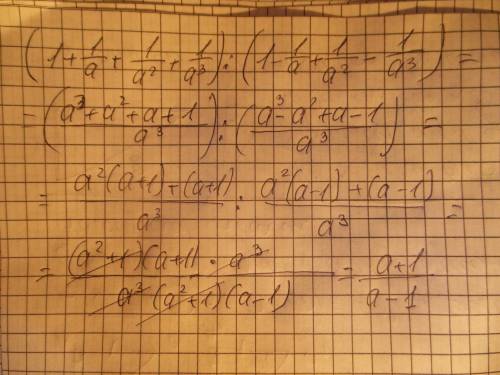 (1+1/a+1/a²+1/a³):(1-1/a+1/a²-1/a³)=
-(a³+a²+a+1/a³):(a³-a²+a-1/a³)=
=a²(a+1)+(a+1)/a³:a²(a-1)+(a-1)/a³=
=(a²+1)(a+1)·a³/a³(a²+1)(a-1)=a+1/a-1